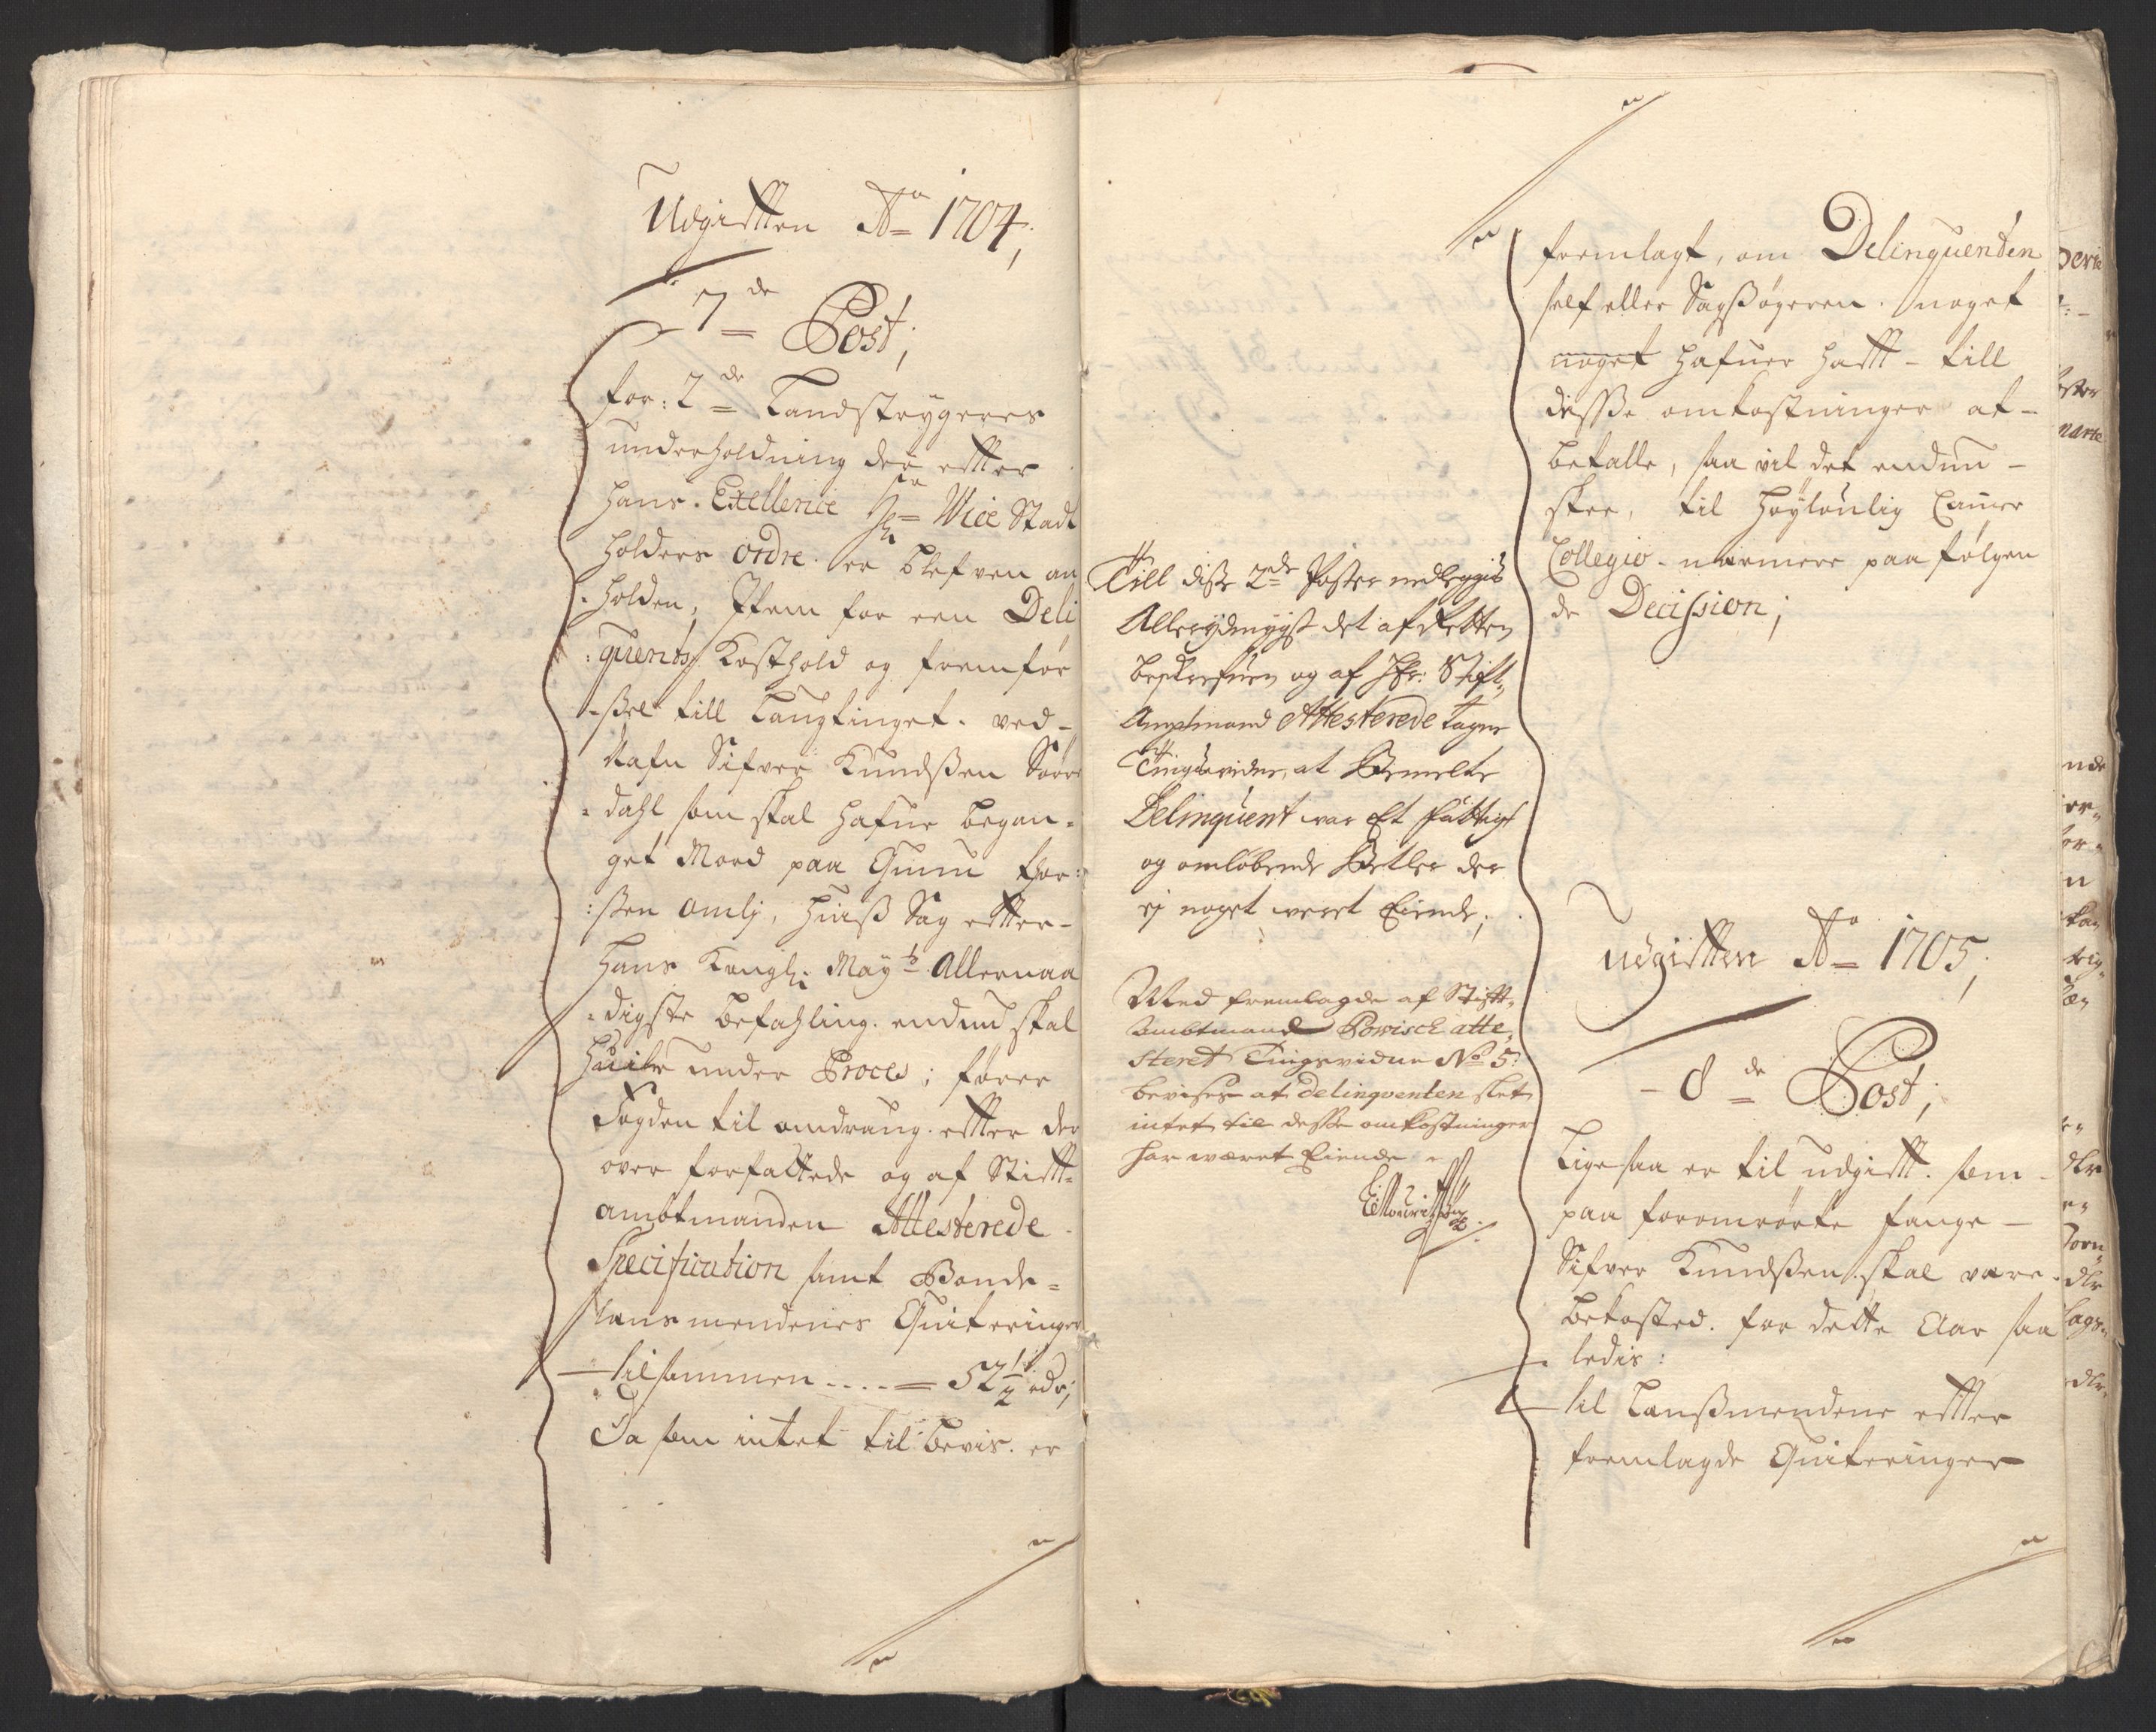 Udgifften Aō 1704;
7de Post;
for: 2de Landstrygeres
underholdning der effter
Hans Exellence Hr Wice Stadt
holders ordre er blefven an
holden, Item for een Deli
quents Kosthold og fremfør
ßel till Laugtinget ved
Nafn Sifver Knudßen
dahl som skal hafue began
get Mord paa Gunu Thor
ßen omlj, huiß Sag effter
Hans Kongl: Mayts Allernaa
digste befahling endnu skal
huile under Proces; fører
Fogden til omdraug effter der
over forfattede og af Stifft
ambtmanden Attesterede
Specification samt Bonde
lansmendenes Quiteringer
tilsammen .... 52½ rdr;
Da som intet til bevis er
Till disse 2de Poster nedleggis
Allerydmygst det af Retten
beskrefuen og af Hr: Stift
Amptmand Attesterede tagne
Tingsvidne, at Bemelte
Delinquent var Et fattigt
og omløbende Betler der
ej noget veret Eiende;
Med fremlagde af Stifft
ambtmand Powisch atte
steret Tingsvidne No 5
bevises at delinqventen slet
intet til desse omkostninger
har været Eiende
fremlagt, om Delinquenten
self eller Sagßøgeren noget
noget hafuer hafft till
disse omkostninger at
betalle, saa vil det endnu
skee, til høylønlig Camer
Collegio nærmere paa følgen
de Decission;
udgifften Aō 1705;
8de Post;
Ligesaa er til udgifft som
paa forommrørte fange
Sifver Knudßen skal være
bekosted for dette Aar saa
ledis:
til Lanßmendene effter
fremlagde Quiteringer